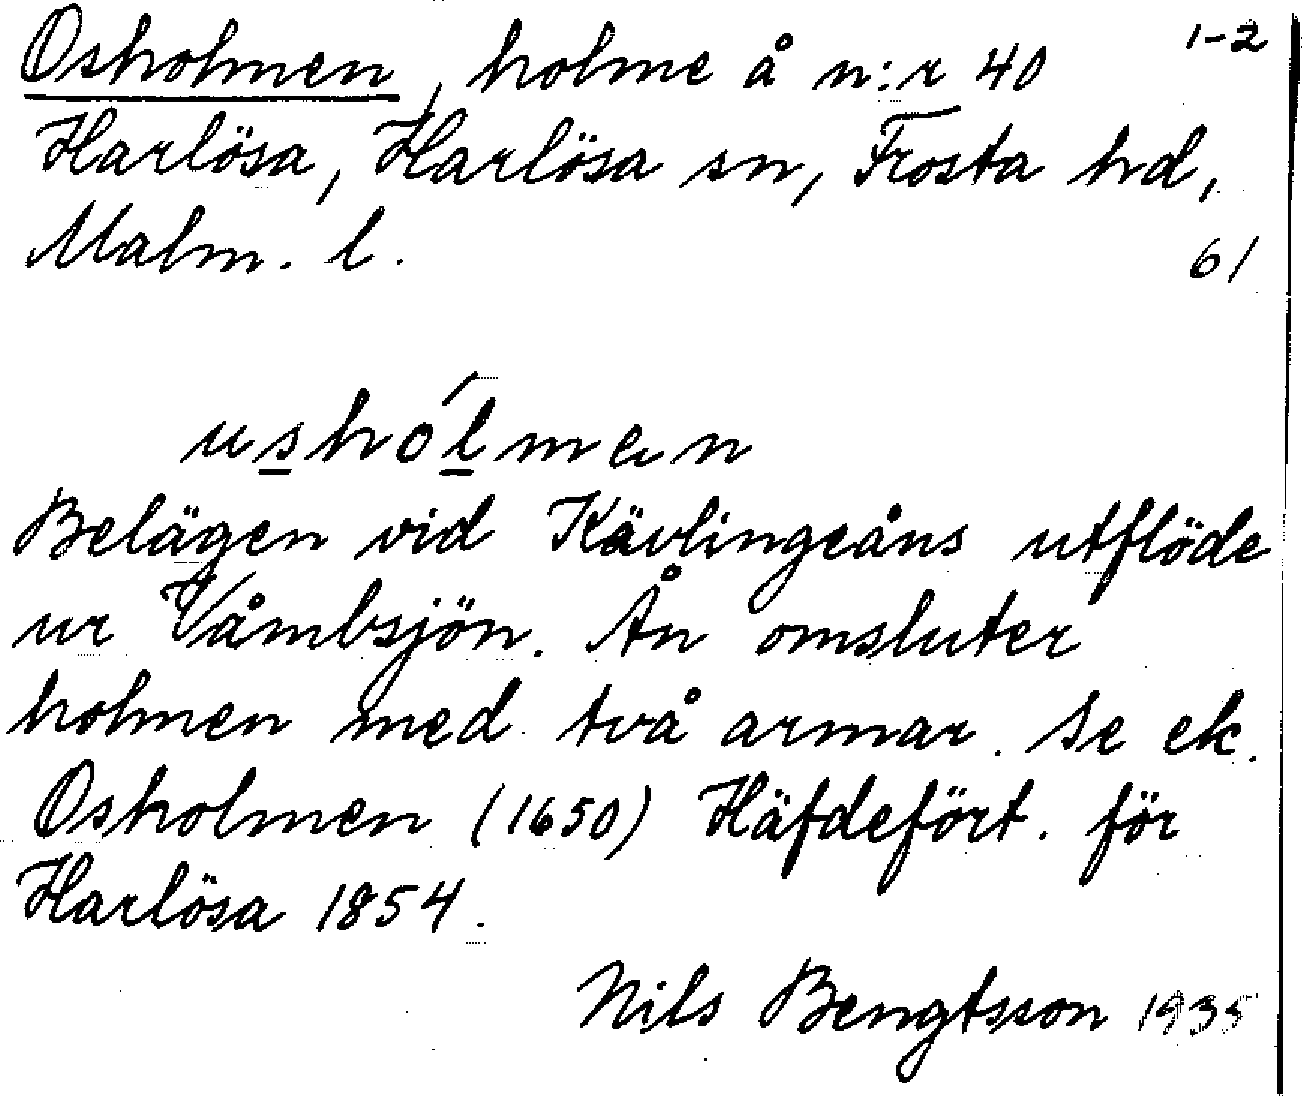 Osholmen, holme å n:r 40 1-2
Harlösa, Harlösa sn, Frosta hd,
Malm. l. 61
ushólmen
Belägen vid Kävlingeåns utflöde
ur Våmbsjön. Ån omsluter
holmen med två armar. Se ek.
Osholmen (1650) Häfdefört. för
Harlösa 1854.
Nils Bengtsson 1935